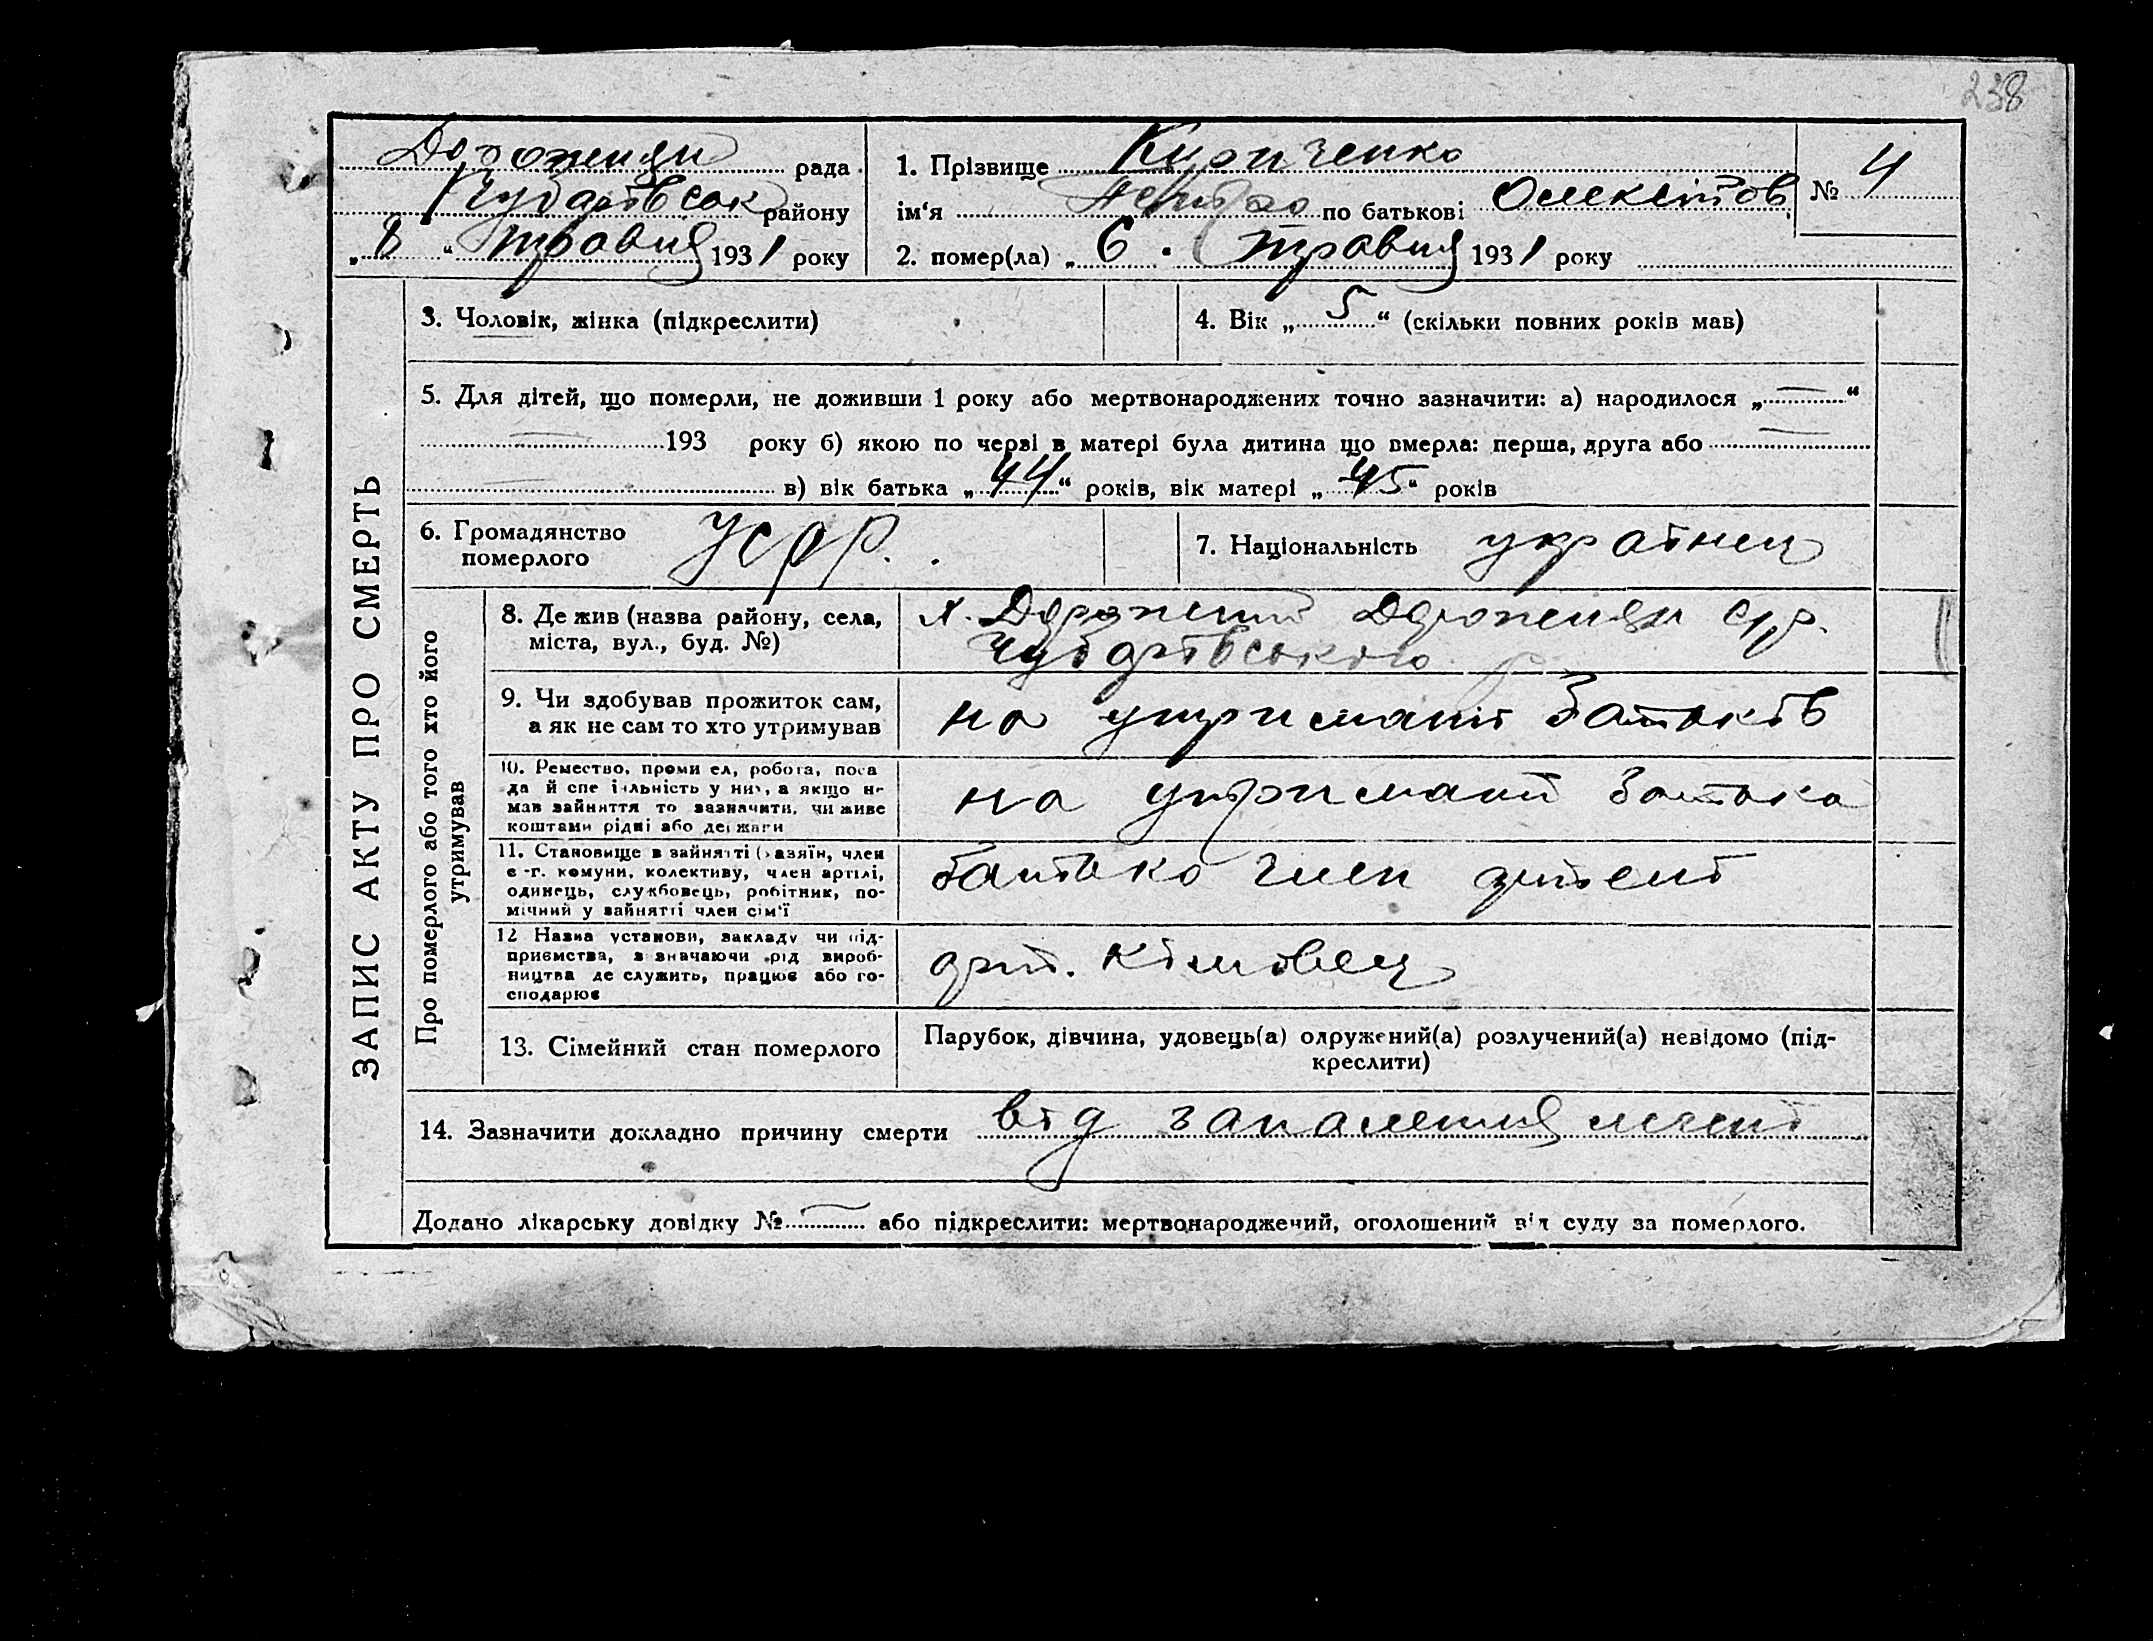 238
рада
району
„ 8 “ травня 1931 року
1. Прізвище Кириченко
ім‘я Петро по батькові
2. помер(ла) „ 6 . травня 1931 року
№ 4
ЗАПИС АКТУ ПРО СМЕРТЬ
3. Чоловік, жінка (підкреслити)
4. Вік „ 5 “ (скільки повних років мав)
5. Для дітей, що померли, не доживши 1 року або мертвонароджених точно зазначити: а) народилося „ — “
— 193 року б) якою по черзі в матері була дитина що вмерла: перша, друга або —
— в) вік батька „ 44 “ років, вік матері „ 45 “ років
6. Громадянство
померлого
УСРР.
7. Національність українец
Про померлого або того хто його
утримував
8. Де жив (назва району, села,
міста, вул., буд. №)
9. Чи здобував прожиток сам,
а як не сам то хто утримував
на утримані батьків
10. Ремество, промисел, робота, поса
да й спеціяльність у ній, а якщо не
мав зайняття то зазначити, чи живе
коштами рідні або держави
на утримані батька
11. Становище в зайнятті (хазяїн, член
с.-г. комуни, колективу, член артілі,
одинець, службовець, робітник, по-
мічний у зайнятті член сім‘ї
батько член артелі
12 Назва установи, закладу чи під-
приємства, зазначаючи рід вироб-
ництва де служить, працює або го-
сподарює
арт.
13. Сімейний стан померлого
Парубок, дівчина, удовець(а) одружений(а) розлучений(а) невідомо (під-
креслити)
14. Зазначити докладно причину смерти від запалення
Додано лікарську довідку № — або підкреслити: мертвонароджений, оголошений від суду за померлого.